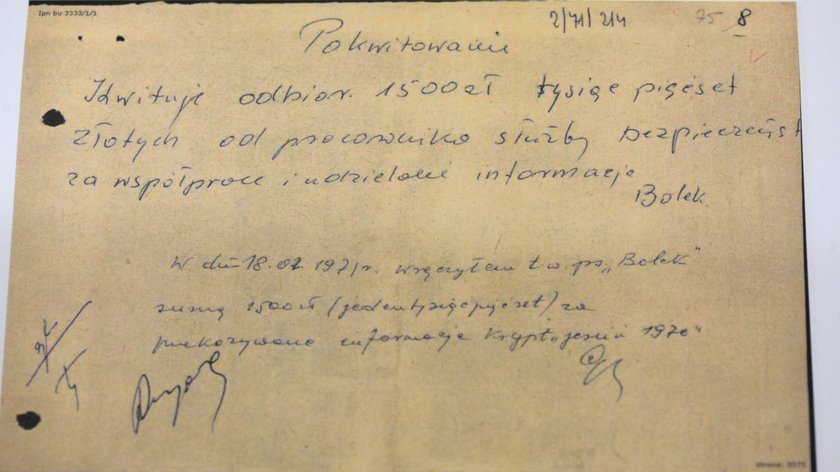 Ipn bu 3333/1/1
2/71/214 75 8
Pokwitowanie
Kwituje odbiór. 1500zł tysiąc pięćset
złotych od pracownika służby bezpieczeńst
za współprace i udzielanie informacje
Bolek
W dniu 18.01.1971r. wręczyłem t.w. ps. „Bolek"
sumę 1500 zł (jedentysiącpięćset) za
przekazywane informacje krypt. „jesień 1970"
strona: 0075